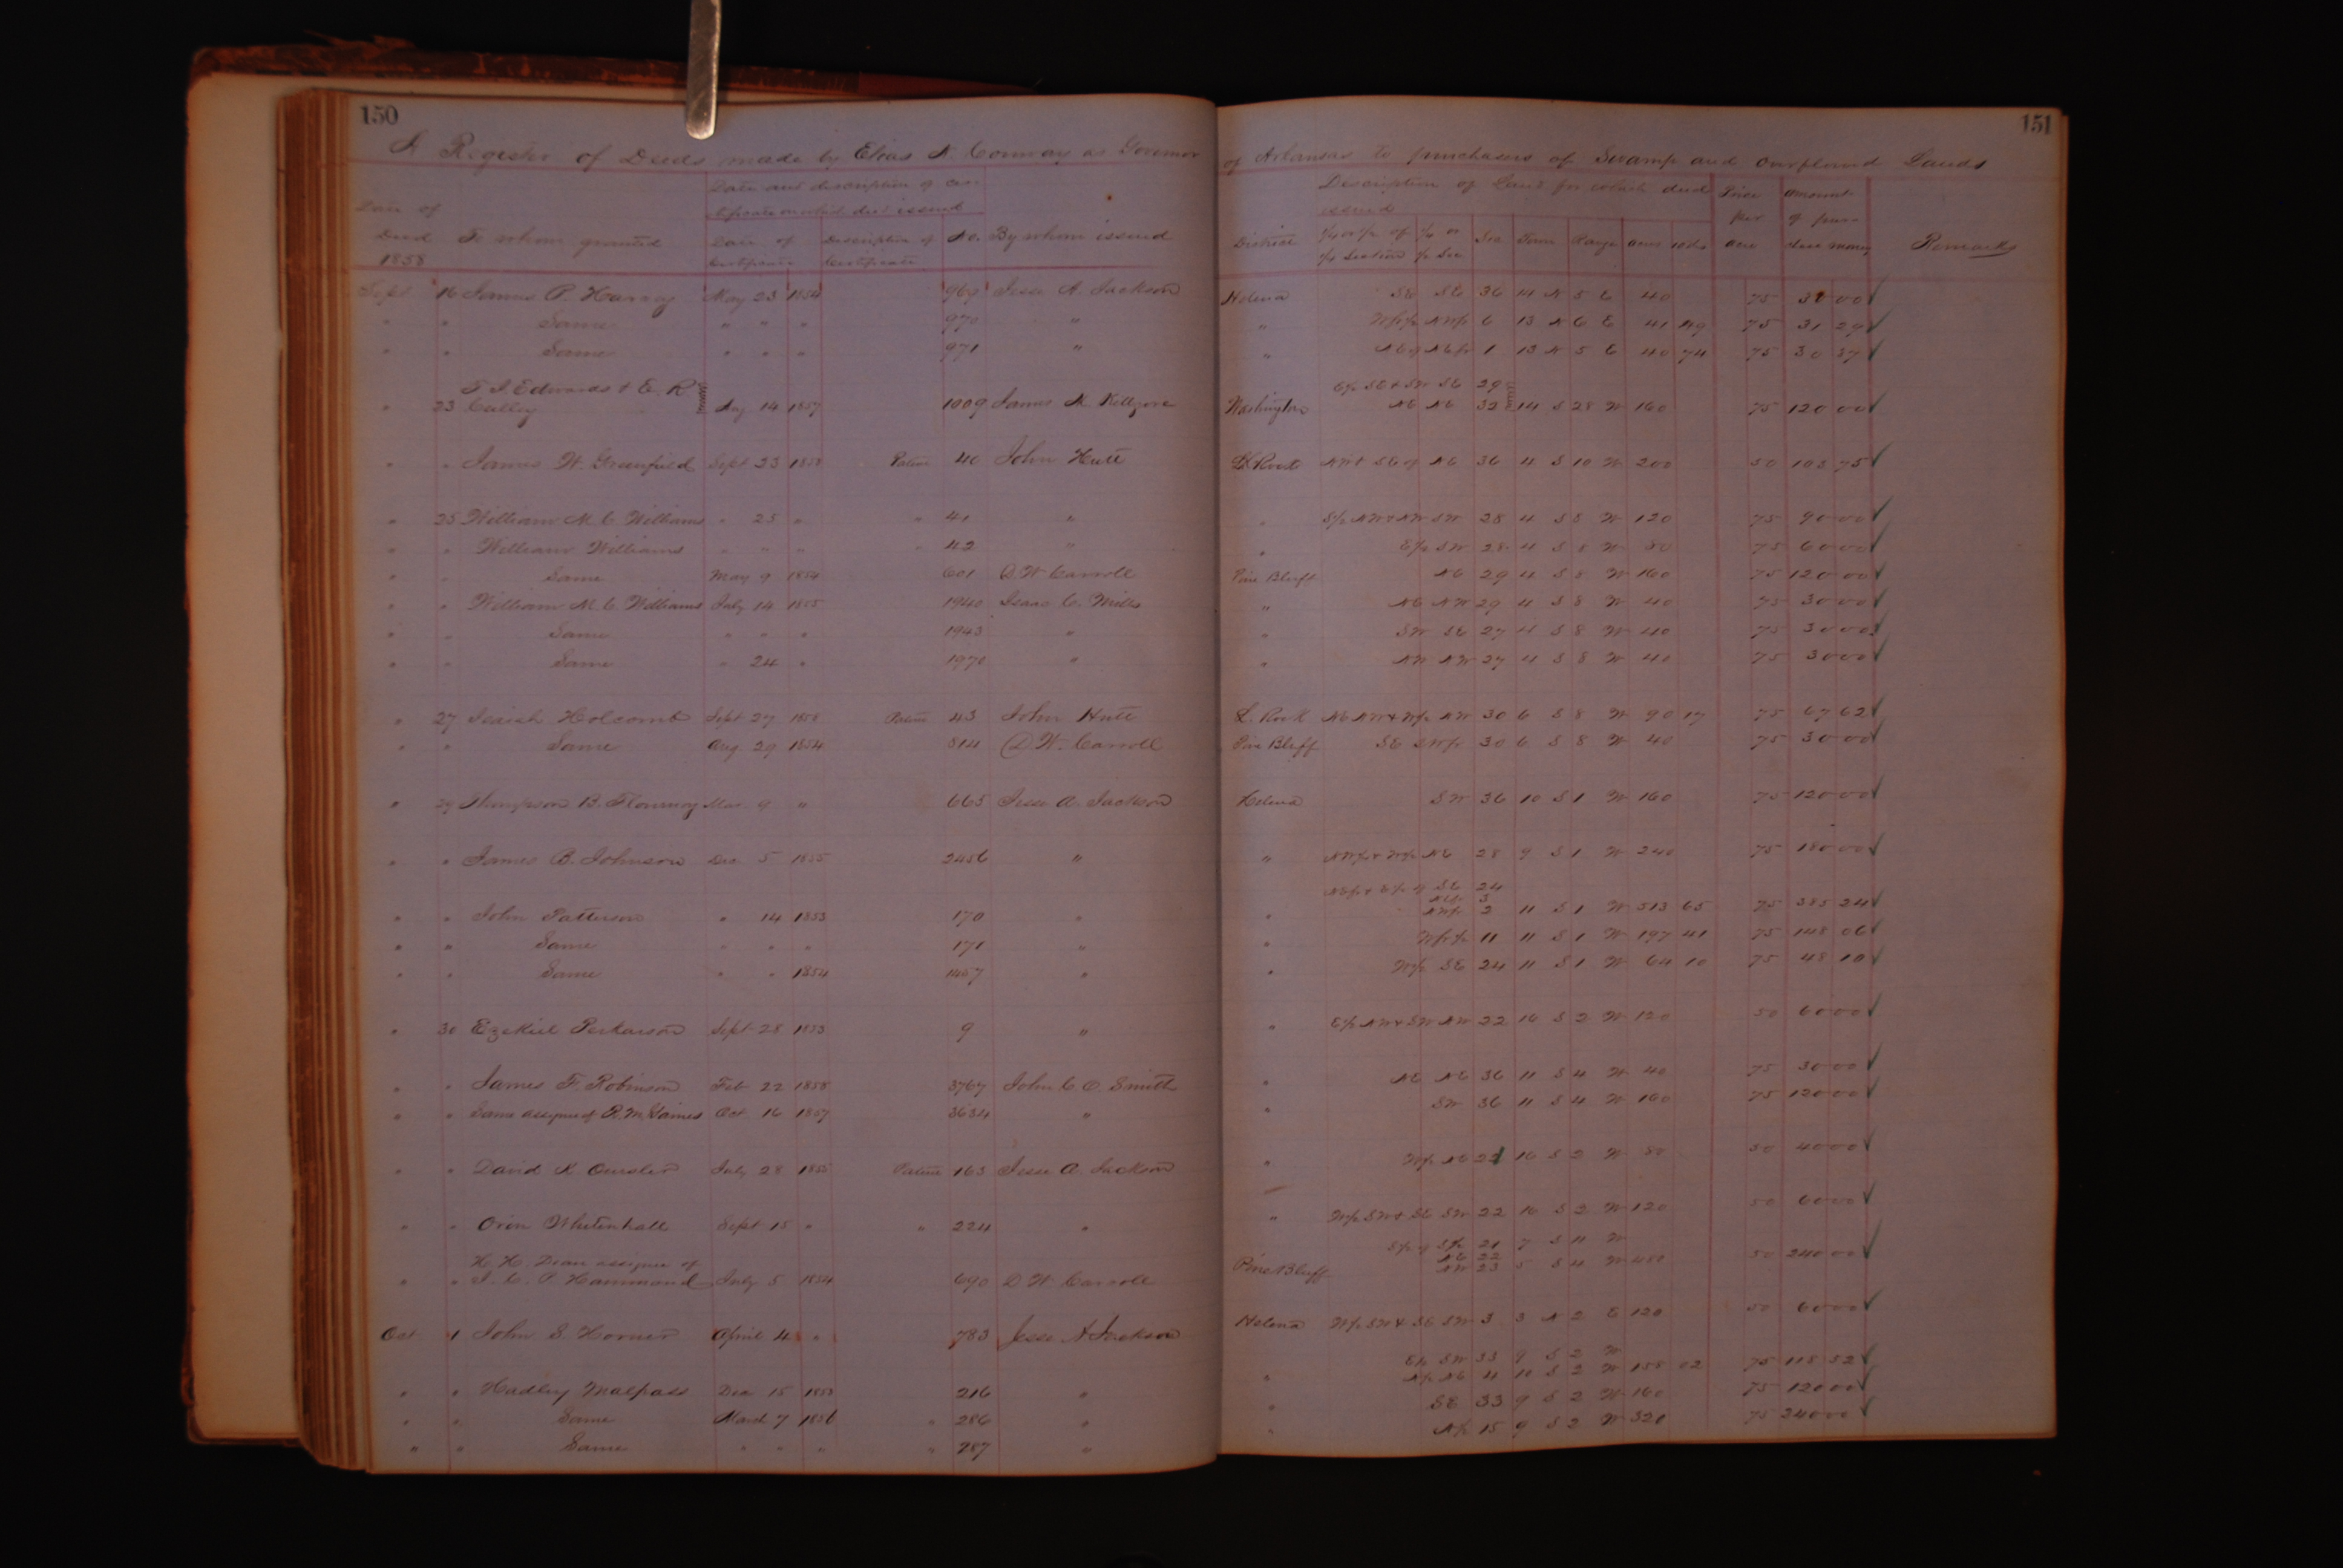 150
151
A Register of Deeds made by Elias N. Conway as Governor of Arkansas to purchasers of Swamp and overflowed Lands
Date of Deed 1858 To whom granted Date and description of certificate on which deed issued Date of Certificate Description of Certificate No. By whom issued District Description of Land for which deed issued Sec Town Range acres 100ths Price per acre amount of purchase money Remarks
Sept 16 James P. May 23 1854 969 Jesse A. Jackson Helena SE SE 36 14 N 5 E 40 75 30 00 ✓
" " Same " " " 970 " " 6 13 N 6 E 41 75 31 29 ✓
" " Same " " " 971 " " 1 13 N 5 E 40 74 75 30 57 ✓
T. J. Edwards & E. R. E/2 SE & SW SE 29
" 23 Aug 14 1857 1009 James M Killgore Washington NE NE 32 14 S 28 W 160 75 120 00 ✓
" " James W. Greenfield Sept 23 1858 Patent 40 John Hutt L Rock 36 4 S 10 W 200 50 103 75 ✓
" 25 William M. C. Williams " 25 " " 41 " " S/2 NW & NW SW 28 4 S 8 W 120 75 90 00 ✓
" " William Williams " " " " 42 " " E/2 SW 28 4 S 8 W 80 75 60 00 ✓
" " Same May 9 1854 601 D. W. Carroll Pine Bluff NE 29 4 S 8 W 160 75 120 00 ✓
" " William M. C. Williams July 14 1855 1940 Isaac C. Mills " NE NW 29 4 S 8 W 40 75 30 00 ✓
" " Same " " " 1943 " " SW SE 27 4 S 8 W 40 75 30 00 ✓
" " Same " 24 " 1970 " " NW NW 27 4 S 8 W 40 75 30 00 ✓
" 27 Isaiah Holcomb Sept 27 1858 Patent 43 John Hutt L. Rock NE NW & W/2 NW 30 6 S 8 W 90 17 75 67 62 ✓
" " Same Aug. 29 1854 814 D. W. Carroll Pine Bluff SE 30 6 S 8 W 40 75 30 00 ✓
" 29 Thompson B. Flournoy Mar 9 " 665 Jesse A. Jackson Helena SW 36 10 S 1 W 160 75 120 00 ✓
" " James B. Johnson Dec 5 1855 2456 " " NE 28 9 S 1 W 240 75 180 00 ✓
SE 24
3
" " John Patterson " 14 1853 170 " " 2 11 S 1 W 513 65 75 385 24 ✓
" " Same " " " 171 " " 11 11 S 1 W 197 41 75 148 06 ✓
" " Same " " 1854 1457 " " SE 24 11 S 1 W 64 10 75 48 10 ✓
" 30 Ezekiel Perkerson Sept 28 1853 9 " " E/2 NW & SW NW 22 16 S 2 W 120 50 60 00 ✓
" " James F. Robinson Feb 22 1858 3767 John C. O. Smith " NE NE 36 11 S 4 W 40 75 30 00 ✓
" " Same assignee of R. M. Gaines Oct 16 1857 3634 " " SW 36 11 S 4 W 160 75 120 00 ✓
" " David K. July 28 1855 Patent 163 Jesse A. Jackson " W/2 NE 16 S 2 W 80 50 40 00 ✓
" " Oren Whitenhall Sept 15 " " 224 " " W/2 SW & SE SW 22 16 S 2 W 120 50 60 00 ✓
H. H. Dean assignee of 21 7 S 11 W
NE 22
" " J. C. P. Hammond July 5 1854 690 D W Carroll Pine Bluff NW 23 5 S 4 W 480 50 240 00 ✓
Oct 1 John S. Horner April 4 " 783 Jesse A Jackson Helena W/2 SW & SE SW 3 3 N 2 E 120 50 60 00 ✓
E/2 SW 33 9 S 2 W
" " Hadley Malpass Dec 15 1853 216 " " N/2 NE 4 10 S 2 W 158 02 75 118 52 ✓
" " Same March 7 1856 " 286 " " SE 33 9 S 2 W 160 75 120 00 ✓
" " Same " " " " 287 " " N/2 15 9 S 2 W 320 75 240 00 ✓